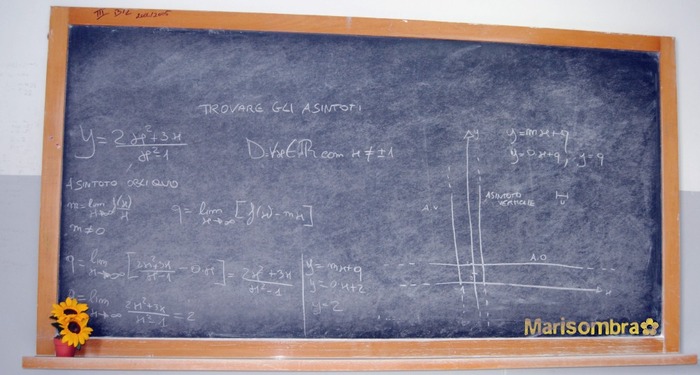 TROVARE GLI ASINTOTI
y = (2x²+3x)/(x²-1)
D: ∀x∈ℝ con x ≠ ±1
ASINTOTO OBLIQUO
m = lim x→∞ f(x)/x
m ≠ 0
q = lim x→∞ [f(x) - mx]
q = lim x→∞ [(2x²+3x)/(x²-1) - 0x] = (2x²+3x)/(x²-1)
lim x→∞ (2x²+3x)/(x²-1) = 2
y = mx+q
y = 0x+2
y = 2
y
y = mx+q
y = 0x+q, y = q
A.V.
ASINTOTO
VERTICALE
A.O
x
Marisombra